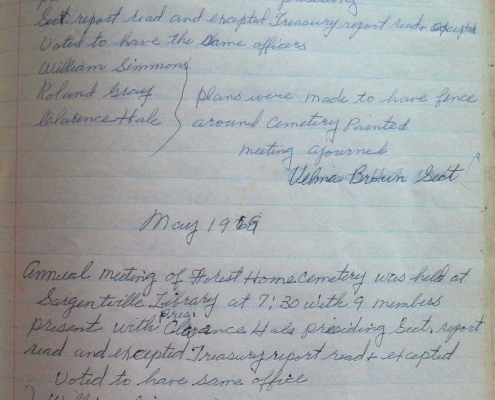 presiding
Sect. report read and excepted Treasury report read & excepted
Voted to have the same officers
William Simmons
Roland Gray
Clarence Hale
plans were made to have fence
around Cemetery Painted
meeting ajourned
Velma Brown Sect
May 1969
Annual meeting of Forest Home Cemetery was held at
Sargentville Library at 7:30 with 9 members
present with Pres. Clarence Hale presiding Sect. report
read and excepted Treasury report read & excepted
Voted to have same office